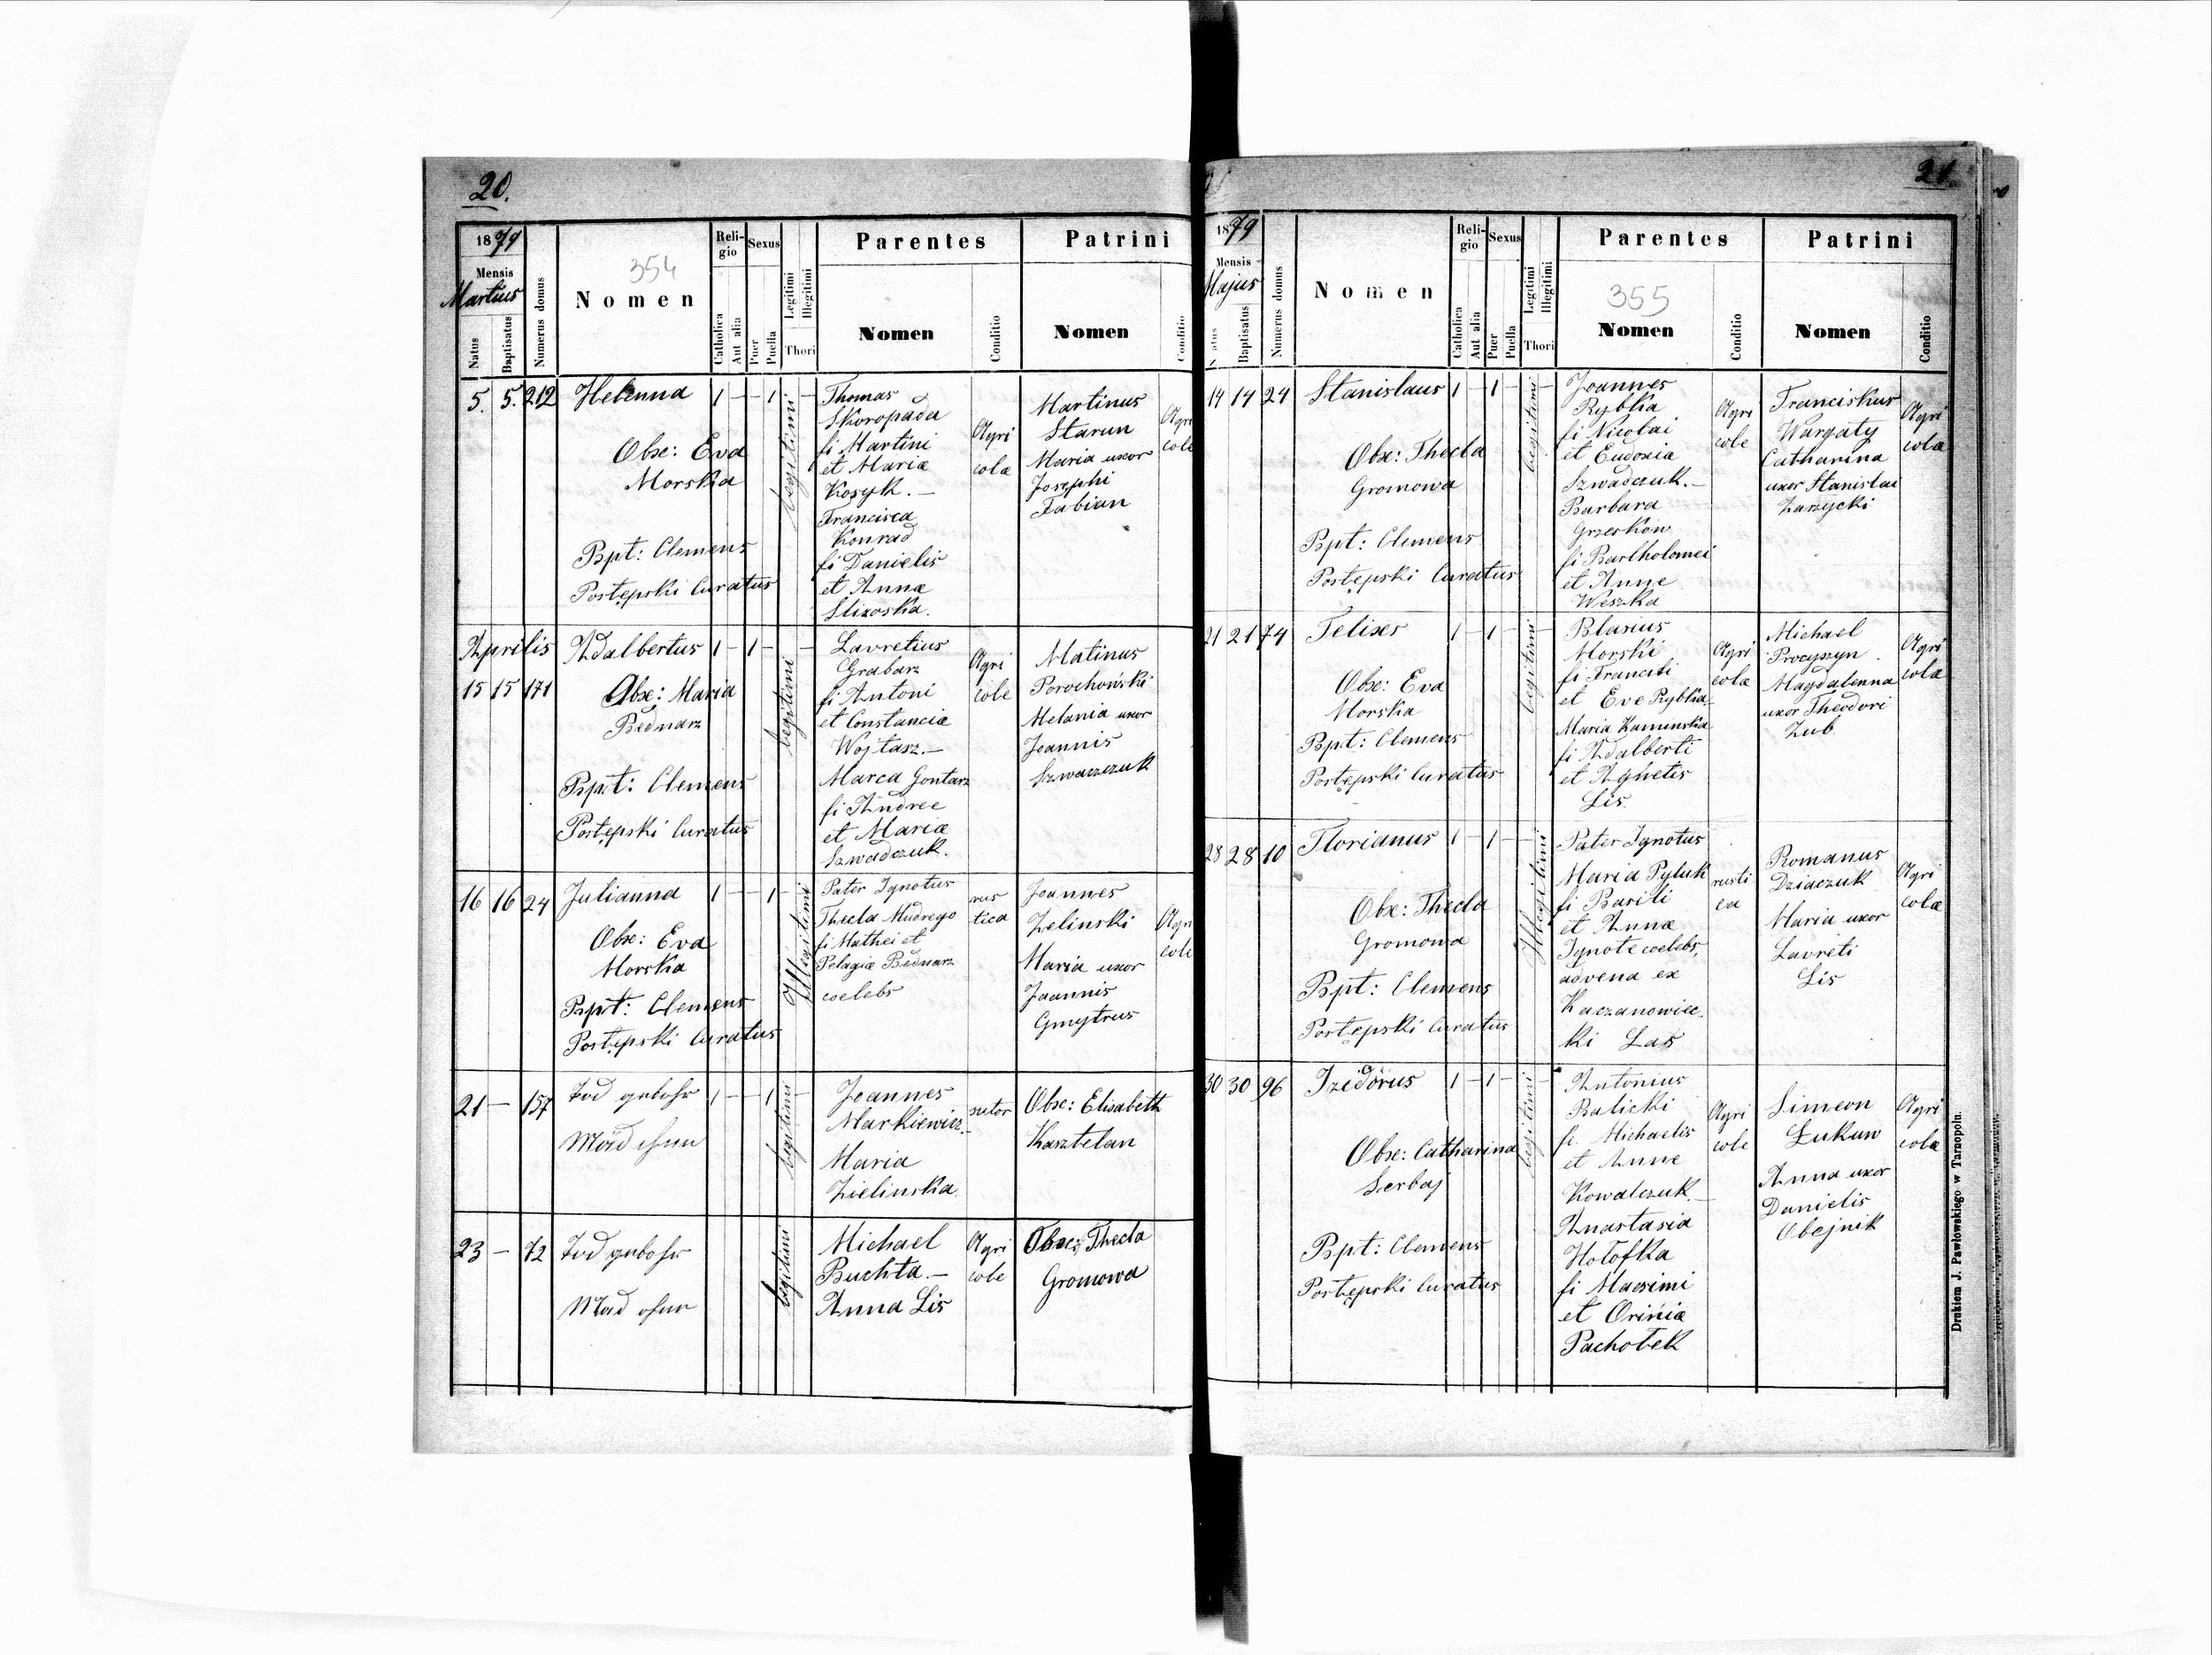 20.
1879
Mensis
Martius
Natus
Baptisatus
Numerus domus
354
Nomen
Religio
Catholica
Aut alia
Sexus
Puer
Puella
Legitimi
Illegitimi
Thori
Parentes
Nomen
Conditio
Patrini
Nomen
Conditio
5. 5. 212 Helenna 1 — — 1 legitimi —
Obse: Eva
Morska
Bpt: Clemens
Postępski Curatus
Thomas
Skoropada
fi Martini
et Mariæ
Kosyk. —
Francisca
Konrad
fi Danielis
et Annæ
Slizoska.
Agri
colæ
Martinus
Starun
Maria uxor
Josephi
Fabian
Agri
cole
Aprilis
15 15 171 Adalbertus 1 — 1 — legitimi —
Obse: Maria
Bednarz
Bpt: Clemens
Postępski Curatus
Lavretius
Grabarz
fi Antoni
et Constanciæ
Wojtasz. —
Marca Gontarz
fi Andree
et Mariæ
Szwadczuk.
Agri
cole
Matinus
Porochoński
Melania uxor
Joannis
Szwazczuk
16 16 24 Julianna 1 — — 1 — Illegitimi
Obse: Eva
Morska
Bpt: Clemens
Postępski Curatus
Pater Ignotus
Thecla Mudrego
fi Mathei et
Pelagiæ Bednarz
coelebs
rus
tica
Joannes
Zelinski
Maria uxor
Joannis
Gmytrus
Agri
cole
21 — 157 Tod gebohr 1 — — 1 legitimi
Mäd chen
Joannes
Markiewicz. —
Maria
Zielinska
sutor
Obse: Elisabeth
Kasztelan
23 — 72 Tod gebohr legitimi
Mäd chen
Michael
Buchta. —
Anna Lis
Agri
cole
Obse: Thecla
Gromowa
21.
1879
Mensis
Majus
Natus
Baptisatus
Numerus domus
Nomen
Religio
Catholica
Aut alia
Sexus
Puer
Puella
Legitimi
Illegitimi
Thori
Parentes
355
Nomen
Conditio
Patrini
Nomen
Conditio
14 14 24 Stanislaus 1 — 1 — legitimi —
Obse: Thecla
Gromowa
Bpt: Clemens
Postępski Curatus
Joannes
Rybka
fi Nicolai
et Eudoxia
Szwadczuk. —
Barbara
Grzeskow
fi Bartholomei
et Anne
Weszka
Agri
cole
Franciskus
Wargaty
Catharina
uxor Stanislai
Zarzycki
Agri
colæ
21 21 74 Felixs 1 — 1 — legitimi —
Obse: Eva
Morska
Bpt: Clemens
Postępski Curatus
Blasius
Morski
fi Franciti
et Eve Rybka
Maria Kaminska
fi Adalberti
et Agnetis
Lis.
Agri
colæ
Michael
Procyszyn
Magdalenna
uxor Theodori
Zub
Agri
colæ
28 28 10 Florianus 1 — 1 — Illegitimi
Obse: Thecla
Gromowa
Bpt: Clemens
Postępski Curatus
Pater Ignotus
Maria Pyluk
fi Basili
et Annæ
Ignote coelebs,
advena ex
Kaczanowiec
ki Las
rusti
ca
Romanus
Dziaczuk
Maria uxor
Lavreti
Lis
Agri
colæ
30 30 96 Izidorus 1 — 1 — legitimi —
Obse: Catharina
Serbaj
Bpt: Clemens
Postępski Curatus
Antonius
Balicki
fi Michaelis
et Anne
Kowalczuk —
Anastasia
Hołofka
fi Macximi
et Oriniæ
Pachołek
Agri
cole
Simeon
Łukuw
Anna uxor
Danielis
Olejnik
Agri
colæ
Drukiem J. Pawłowskiego w Tarnopolu.